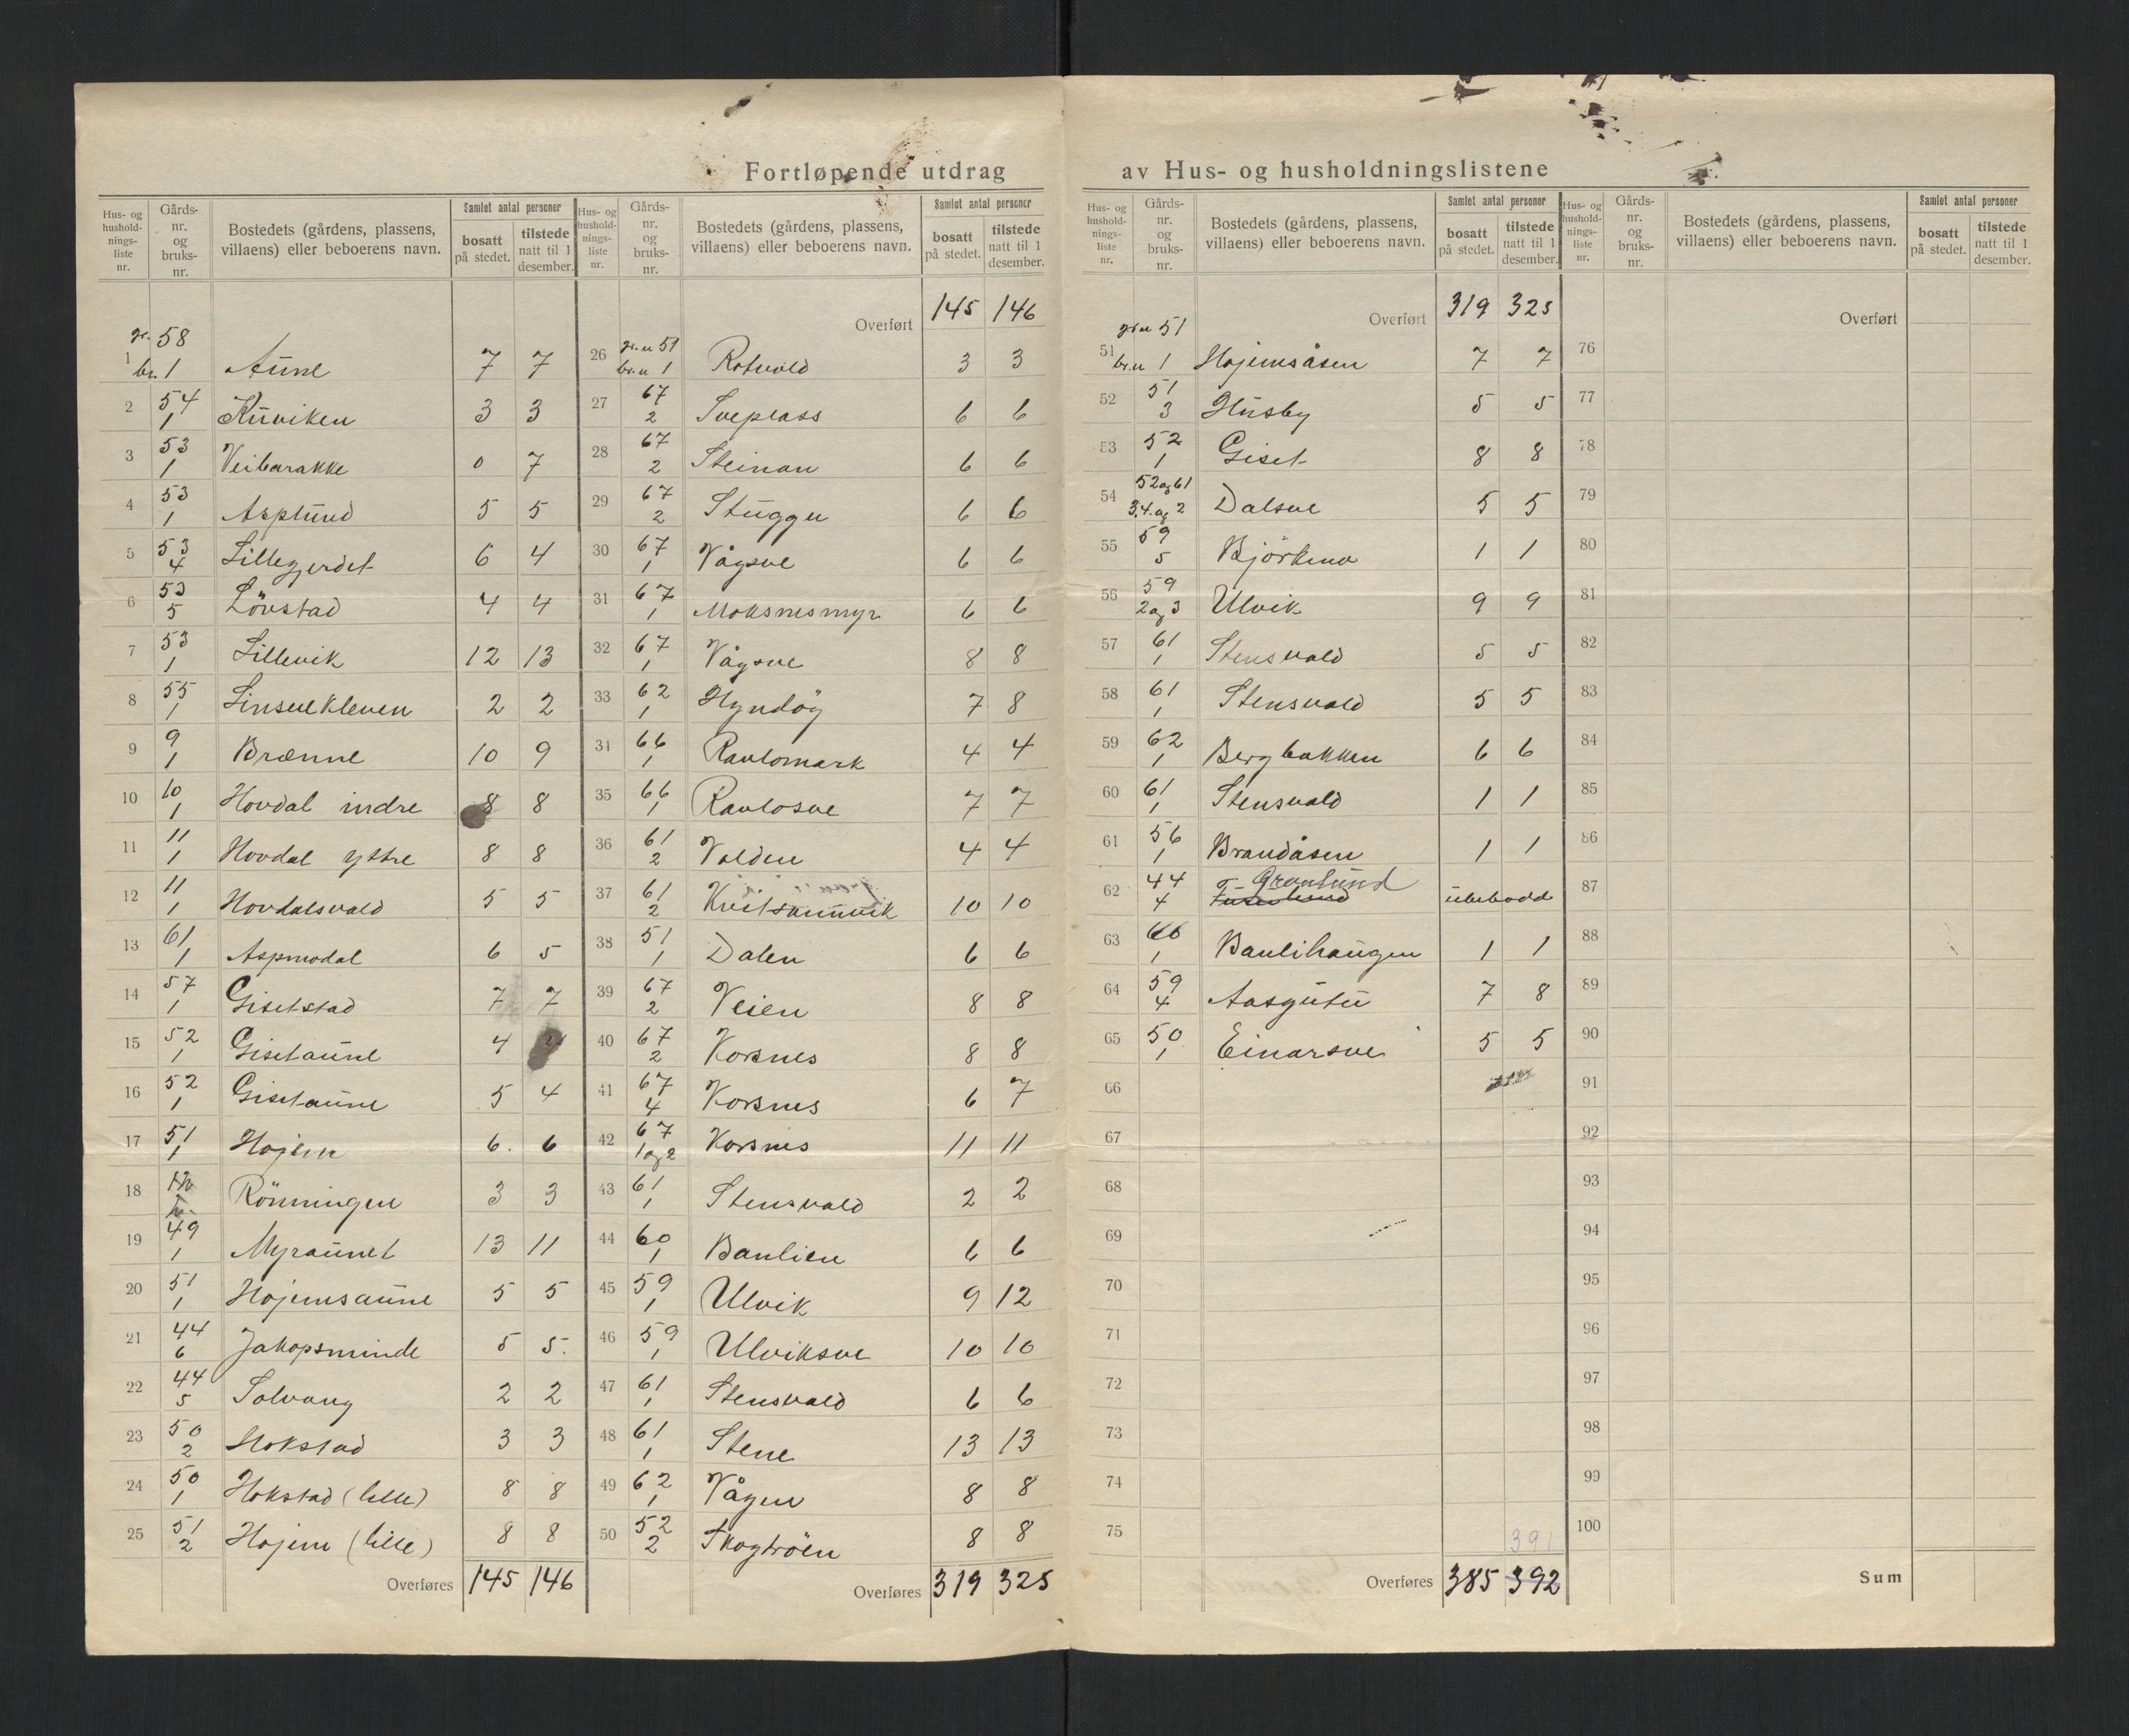 Fortløpende utdrag av Hus- og husholdningslistene
Hus- og hushold-nings-liste nr. Gårds-nr. og bruks-nr. Bostedets (gårdens, plassens, villaens) eller beboerens navn. Samlet antal personer bosatt på stedet. tilstede natt til 1 desember.
gr. 58
1 br. 1 Aune 7 7
2 54 1 Kuviken 3 3
3 53 1 Veibarakke 0 7
4 53 1 Asplund 5 5
5 53 4 Lillegjerdet 6 4
6 53 5 Lövstad 4 4
7 53 1 Lillevik 12 13
8 55 1 Linsvekleven 2 2
9 9 1 Brænne 10 9
10 10 1 Hovdal indre 8 8
11 11 1 Hovdal ystre 8 8
12 11 1 Hovdalsvald 5 5
13 61 1 Aspmodal 6 5
14 57 1 Gisetstad 7 7
15 52 1 Gisetaune 4
16 52 1 Gisetaune 5 4
17 51 1 Hojem 6. 6
18 Rönningen 3 3
19 49 1 Myraunet 13 11
20 51 1 Hojemsaune 5 5
21 44 6 Jakopsminde 5 5.
22 44 5 Solvang 2 2
23 50 2 Hokstad 3 3
24 50 1 Hokstad (lille) 8 8
25 51 2 Hojem (lille) 8 8
Overføres 145 146
Hus- og hushold-nings-liste nr. Gårds-nr. og bruks-nr. Bostedets (gårdens, plassens, villaens) eller beboerens navn. Samlet antal personer bosatt på stedet. tilstede natt til 1 desember.
Overført 145 146
26 gr.n 51 br.n 1 Rotvold 3 3
27 67 2 Sveplass 6 6
28 67 2 Steinan 6 6
29 67 2 Stuggu 6 6
30 67 1 Vågsve 6 6
31 67 1 Moksnesmyr 6 6
32 67 1 Vågsve 8 8
33 62 1 Hyndöy 7 8
34 66 1 Ravlomark 4 4
35 66 1 Ravlosve 7 7
36 61 2 Volden 4 4
37 61 2 Kvitsandvik 10 10
38 51 1 Dalen 6 6
39 67 2 Veien 8 8
40 67 2 Korsnes 8 8
41 67 4 Korsnes 6 7
42 67 1 og 2 Korsnes 11 11
43 61 1 Stensvald 2 2
44 60 1 Baulien 6 6
45 59 1 Ulvik 9 12
46 59 1 Ulviksve 10 10
47 61 1 Stensvald 6 6
48 61 1 Stene 13 13
49 62 1 Vågen 8 8
50 52 2 Skogtröen 8 8
Overføres 319 325
Hus- og hushold-nings-liste nr. Gårds-nr. og bruks-nr. Bostedets (gårdens, plassens, villaens) eller beboerens navn. Samlet antal personer bosatt på stedet. tilstede natt til 1 desember.
Overført 319 325
gr.n 51
51 br.n 1 Hojemsåsen 7 7
52 51 3 Husby 5 5
53 52 1 Giset 8 8
54 52 og 61 3.4. og 2 Dalsve 5 5
55 59 5 Björkmo 1 1
56 59 2 og 3 Ulvik 9 9
57 61 1 Stensvald 5 5
58 61 1 Stensvald 5 5
59 62 1 Bergbakken 6 6
60 61 1 Stensvald 1 1
61 56 1 Brandåsen 1 1
62 44 4 Granlund ubebodd
63 66 1 Baulihaugen 1 1
64 59 4 Aasgutu 7 8
65 50 1 Einarsve 5 5
66
67
68
69
70
71
72
73
74
75 391
Overføres 385 392
Hus- og hushold-nings-liste nr. Gårds-nr. og bruks-nr. Bostedets (gårdens, plassens, villaens) eller beboerens navn. Samlet antal personer bosatt på stedet. tilstede natt til 1 desember.
Overført
76
77
78
79
80
81
82
83
84
85
86
87
88
89
90
91
92
93
94
95
96
97
98
99
100
Sum